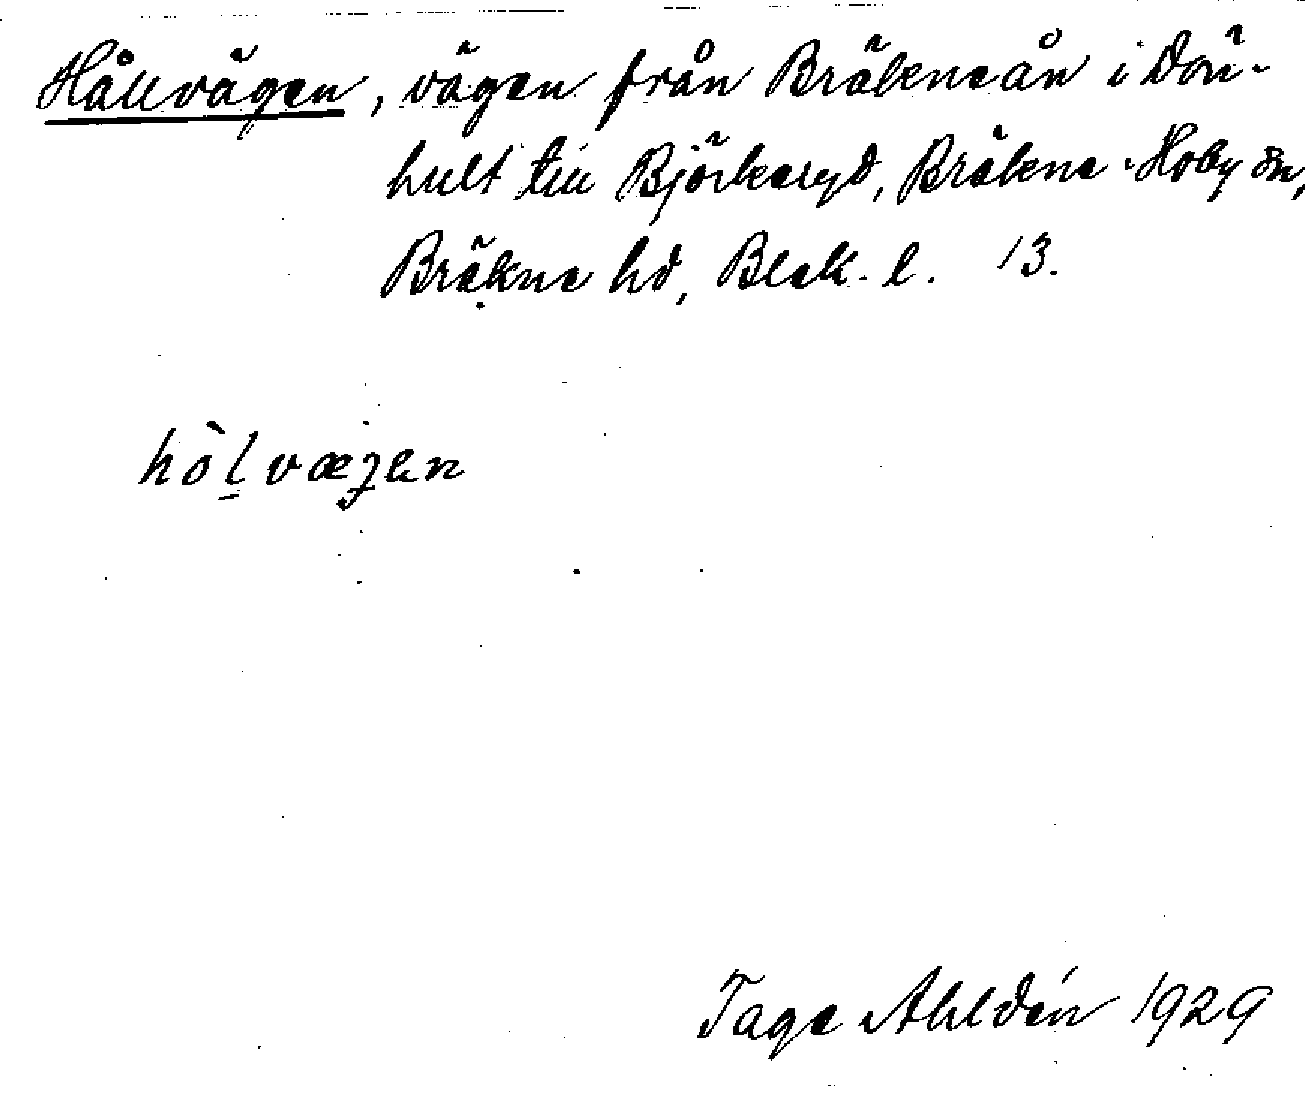 Hållvägen, vägen från Bräkneån i Dön-
hult till Björkeryd, Bräkne-Hoby sn,
Bräkne hd, Blek. l. 13.
hòlvæʒen
Tage Ahldén 1929